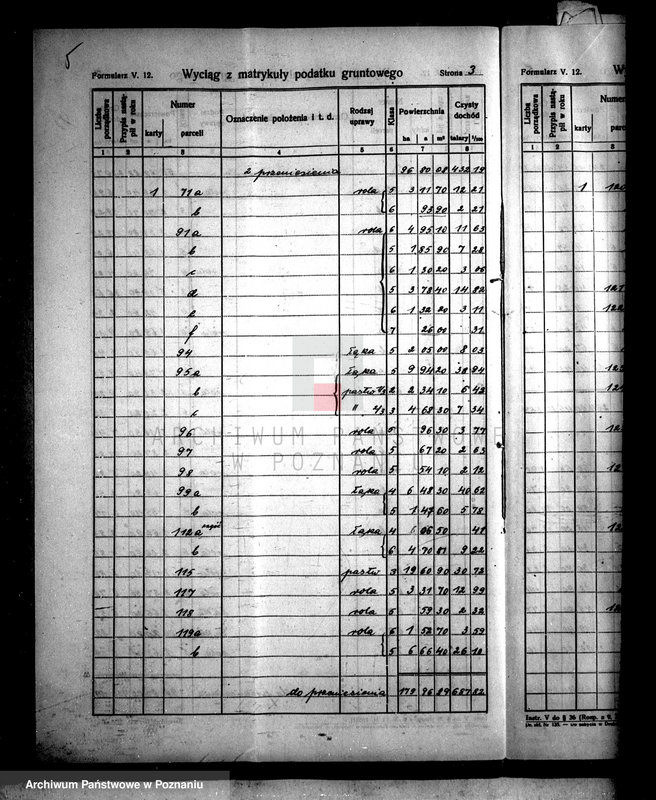 5
Formularz V. 12. Wyciąg z matrykuły podatku gruntowego Strona 3
Liczba porządkowa Przypis nastąpił w roku Numer karty parceli Oznaczenie położenia i t. d. Rodzaj uprawy Klasa Powierzchnia ha a m² Czysty dochód talary 1/100
1 2 3 4 5 6 7 8
z przeniesienia 96 80 08 432 19
1 71a rola 5 3 11 70 12 21
b 6 93 90 2 21
91a rola 6 4 95 10 11 63
b 5 1 85 90 7 28
c 6 1 30 20 3 06
d 5 3 78 40 14 82
e 6 1 32 20 3 11
f 7 26 00 31
94 łąka 5 2 05 00 8 03
95a łąka 5 9 94 20 38 94
b pastw 2 2 34 10 6 42
c " 2/3 3 4 68 30 7 34
96 rola 5 96 30 3 77
97 rola 5 67 20 2 63
98 rola 5 54 10 2 12
99a łąka 4 6 48 30 40 62
b 5 1 47 60 5 78
112a łąka 4 06 50 41
b 6 4 70 81 9 22
115 pastw 3 19 60 90 30 72
117 rola 5 3 31 70 12 99
118 rola 5 59 30 2 32
119a rola 6 1 52 70 3 59
b 5 6 66 40 26 10
do przeniesienia 179 96 89 687 82
Formularz V. 12. Wy
Liczba porządkowa Przypis nastąpił w roku Nume karty parce
1 2 3
1
Instr. V do § 36 (Rosp. z 9.
ARCHIWUM PAŃSTWOWE
W POZNANIU
Archiwum Państwowe w Poznaniu